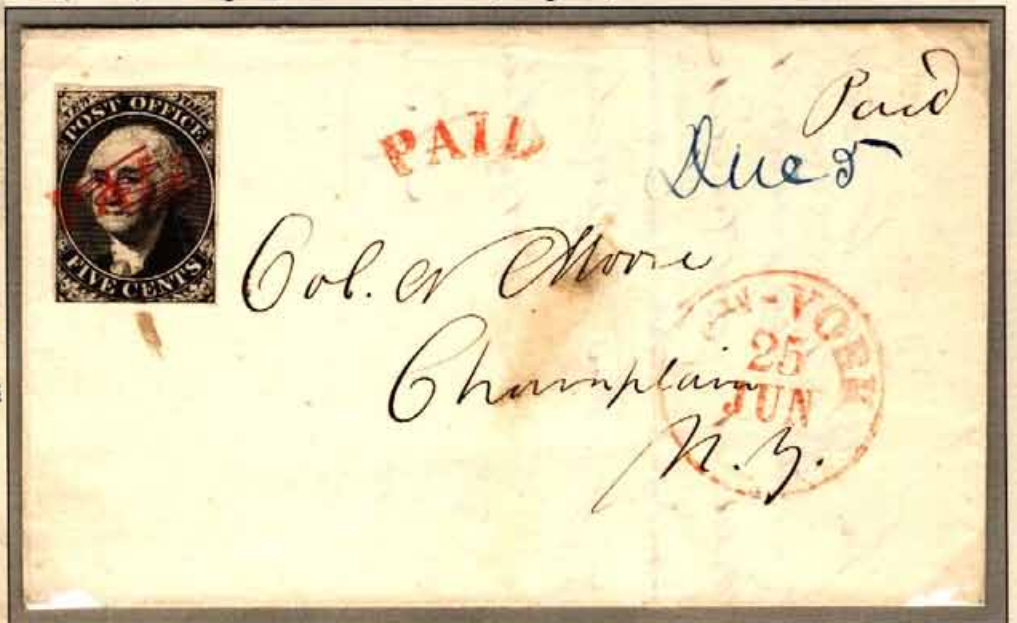 POST OFFICE
FIVE CENTS
PAID
Paid
Due 5
Col. N Moore
Champlain
N.Y.
NEW-YORK
25
JUN